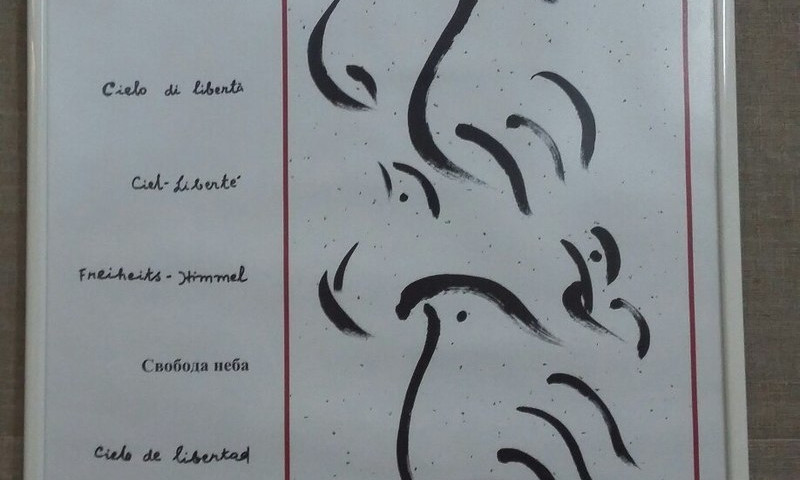 Cielo di libertà
Ciel-Liberté
Freiheits-Himmel
Свобода неба
Cielo de libertad